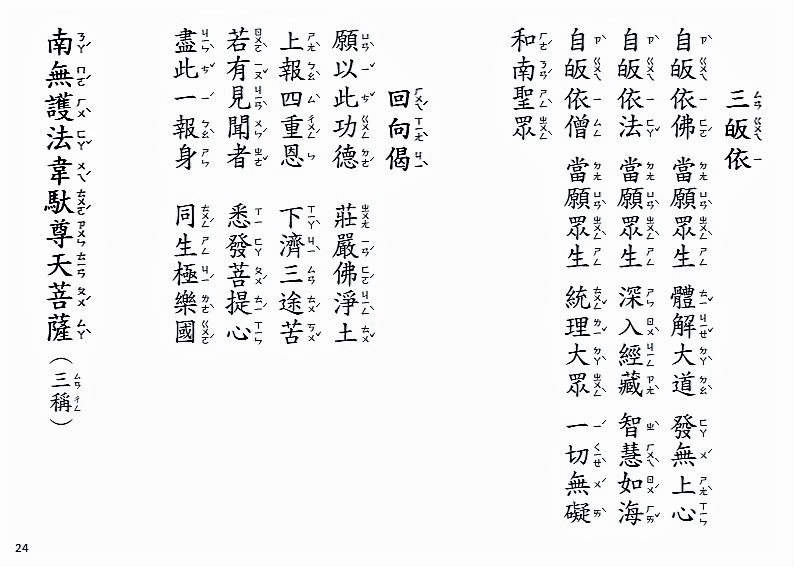 三皈依
自皈依佛 當願眾生 體解大道 發無上心
自皈依法 當願眾生 深入經藏 智慧如海
自皈依僧 當願眾生 統理大眾 一切無礙
和南聖眾
回向偈
願以此功德 莊嚴佛淨土
上報四重恩 下濟三途苦
若有見聞者 悉發菩提心
盡此一報身 同生極樂國
南無護法韋馱尊天菩薩（三稱）
24